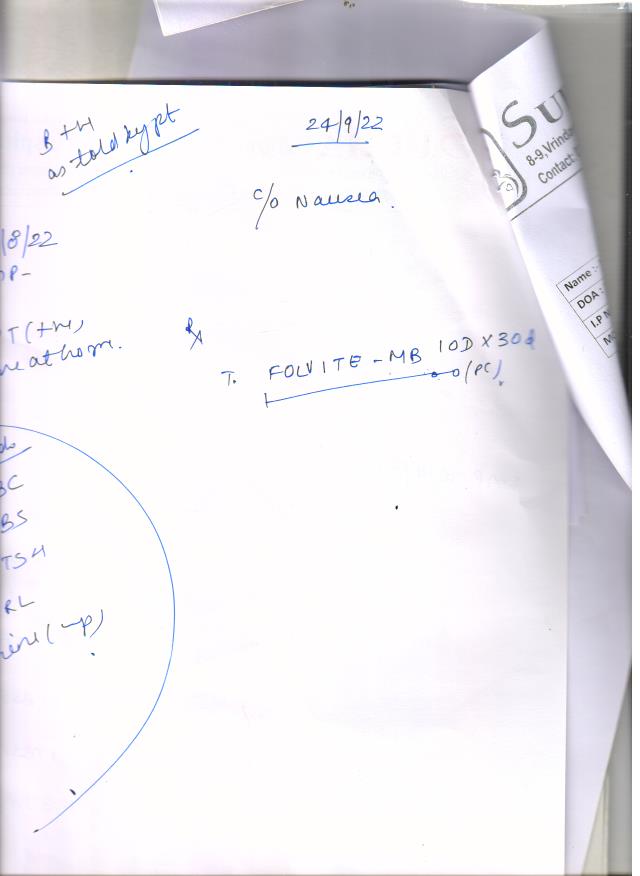 B +ve
as told by pt
24/9/22
c/o Nausea.
/8/22
P-
T (+ve)
at home.
Rx
T. FOLVITE-MB 1OD X 30d
(PC)
BC
BS
TSH
RL
SU
8-9, Vrinda
Contact
Name :-
DOA :
I.P N